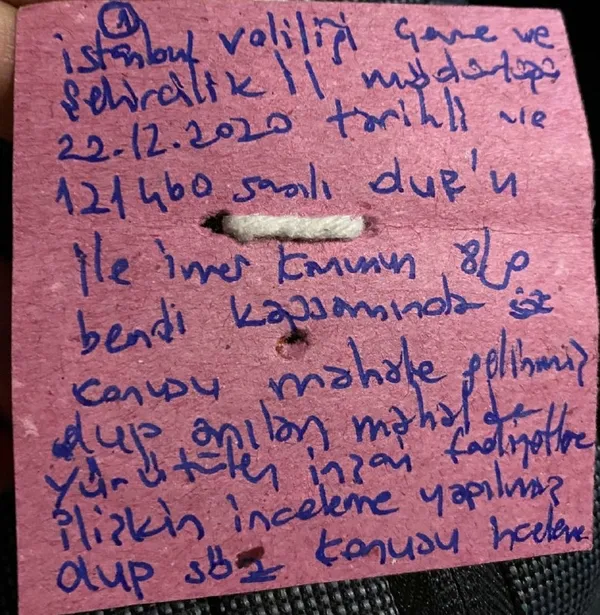 1
istanbul valiliği Çevre ve
Şehircilik İl müdürlüğü
22.12.2020 tarihli ve
121460 sayılı
ile imar kanunun 8/
bendi kapsamında
konusu mahale gelinmiş
olup anılan mahalde
yürütülen inşai faaliyetlere
ilişkin inceleme yapılmış
olup söz konusu inceleme